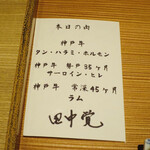 本日の肉
神戸牛
タン・ハラミ・ホルモン
神戸牛 牝戸35ヶ月
サーロイン・ヒレ
神戸牛 常深45ヶ月
ラム
田中覚